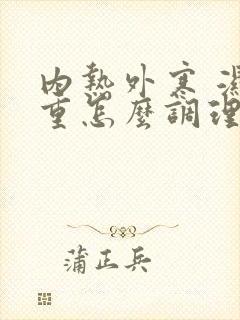 內熱外寒 濕
重怎麼調理
蒲正兵